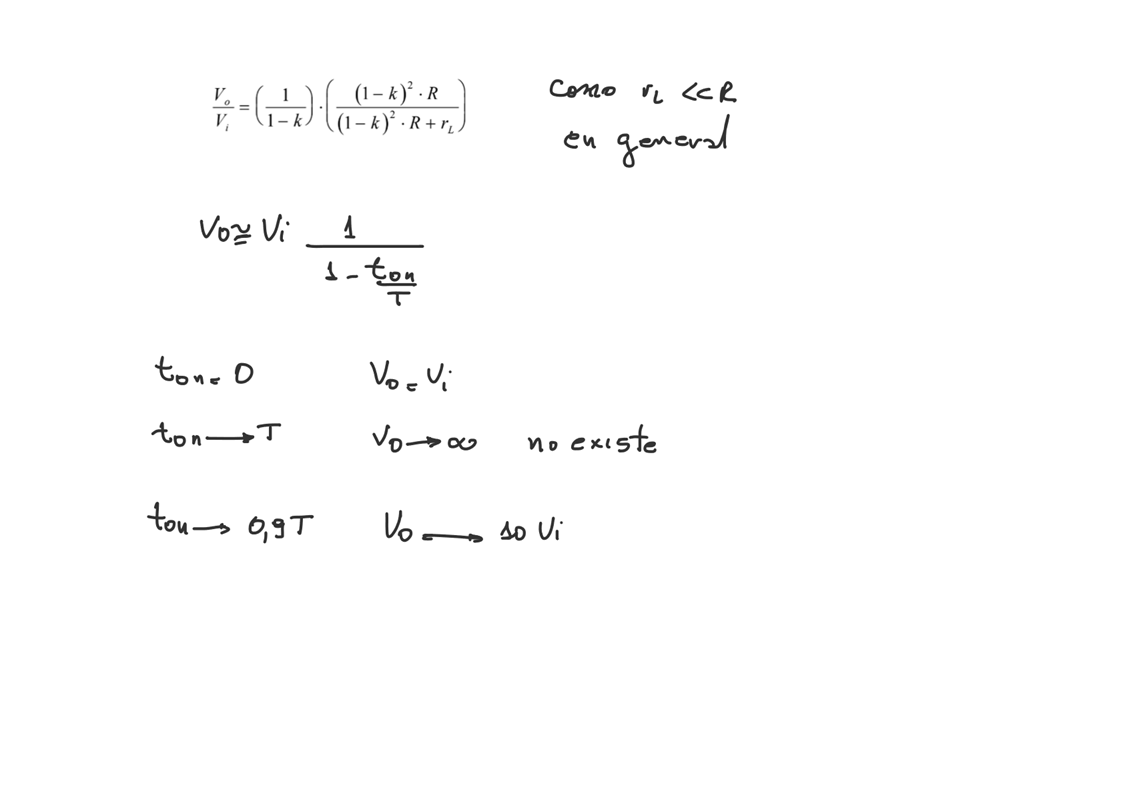 V_o/V_i = (1/(1−k)) · ((1−k)² · R / ((1−k)² · R + r_L))
Como r_L << R
en general
Vo ≅ Vi 1/(1 - ton/T)
ton = 0 Vo = Vi
ton → T Vo → ∞ no existe
ton → 0,9T Vo → 10 Vi